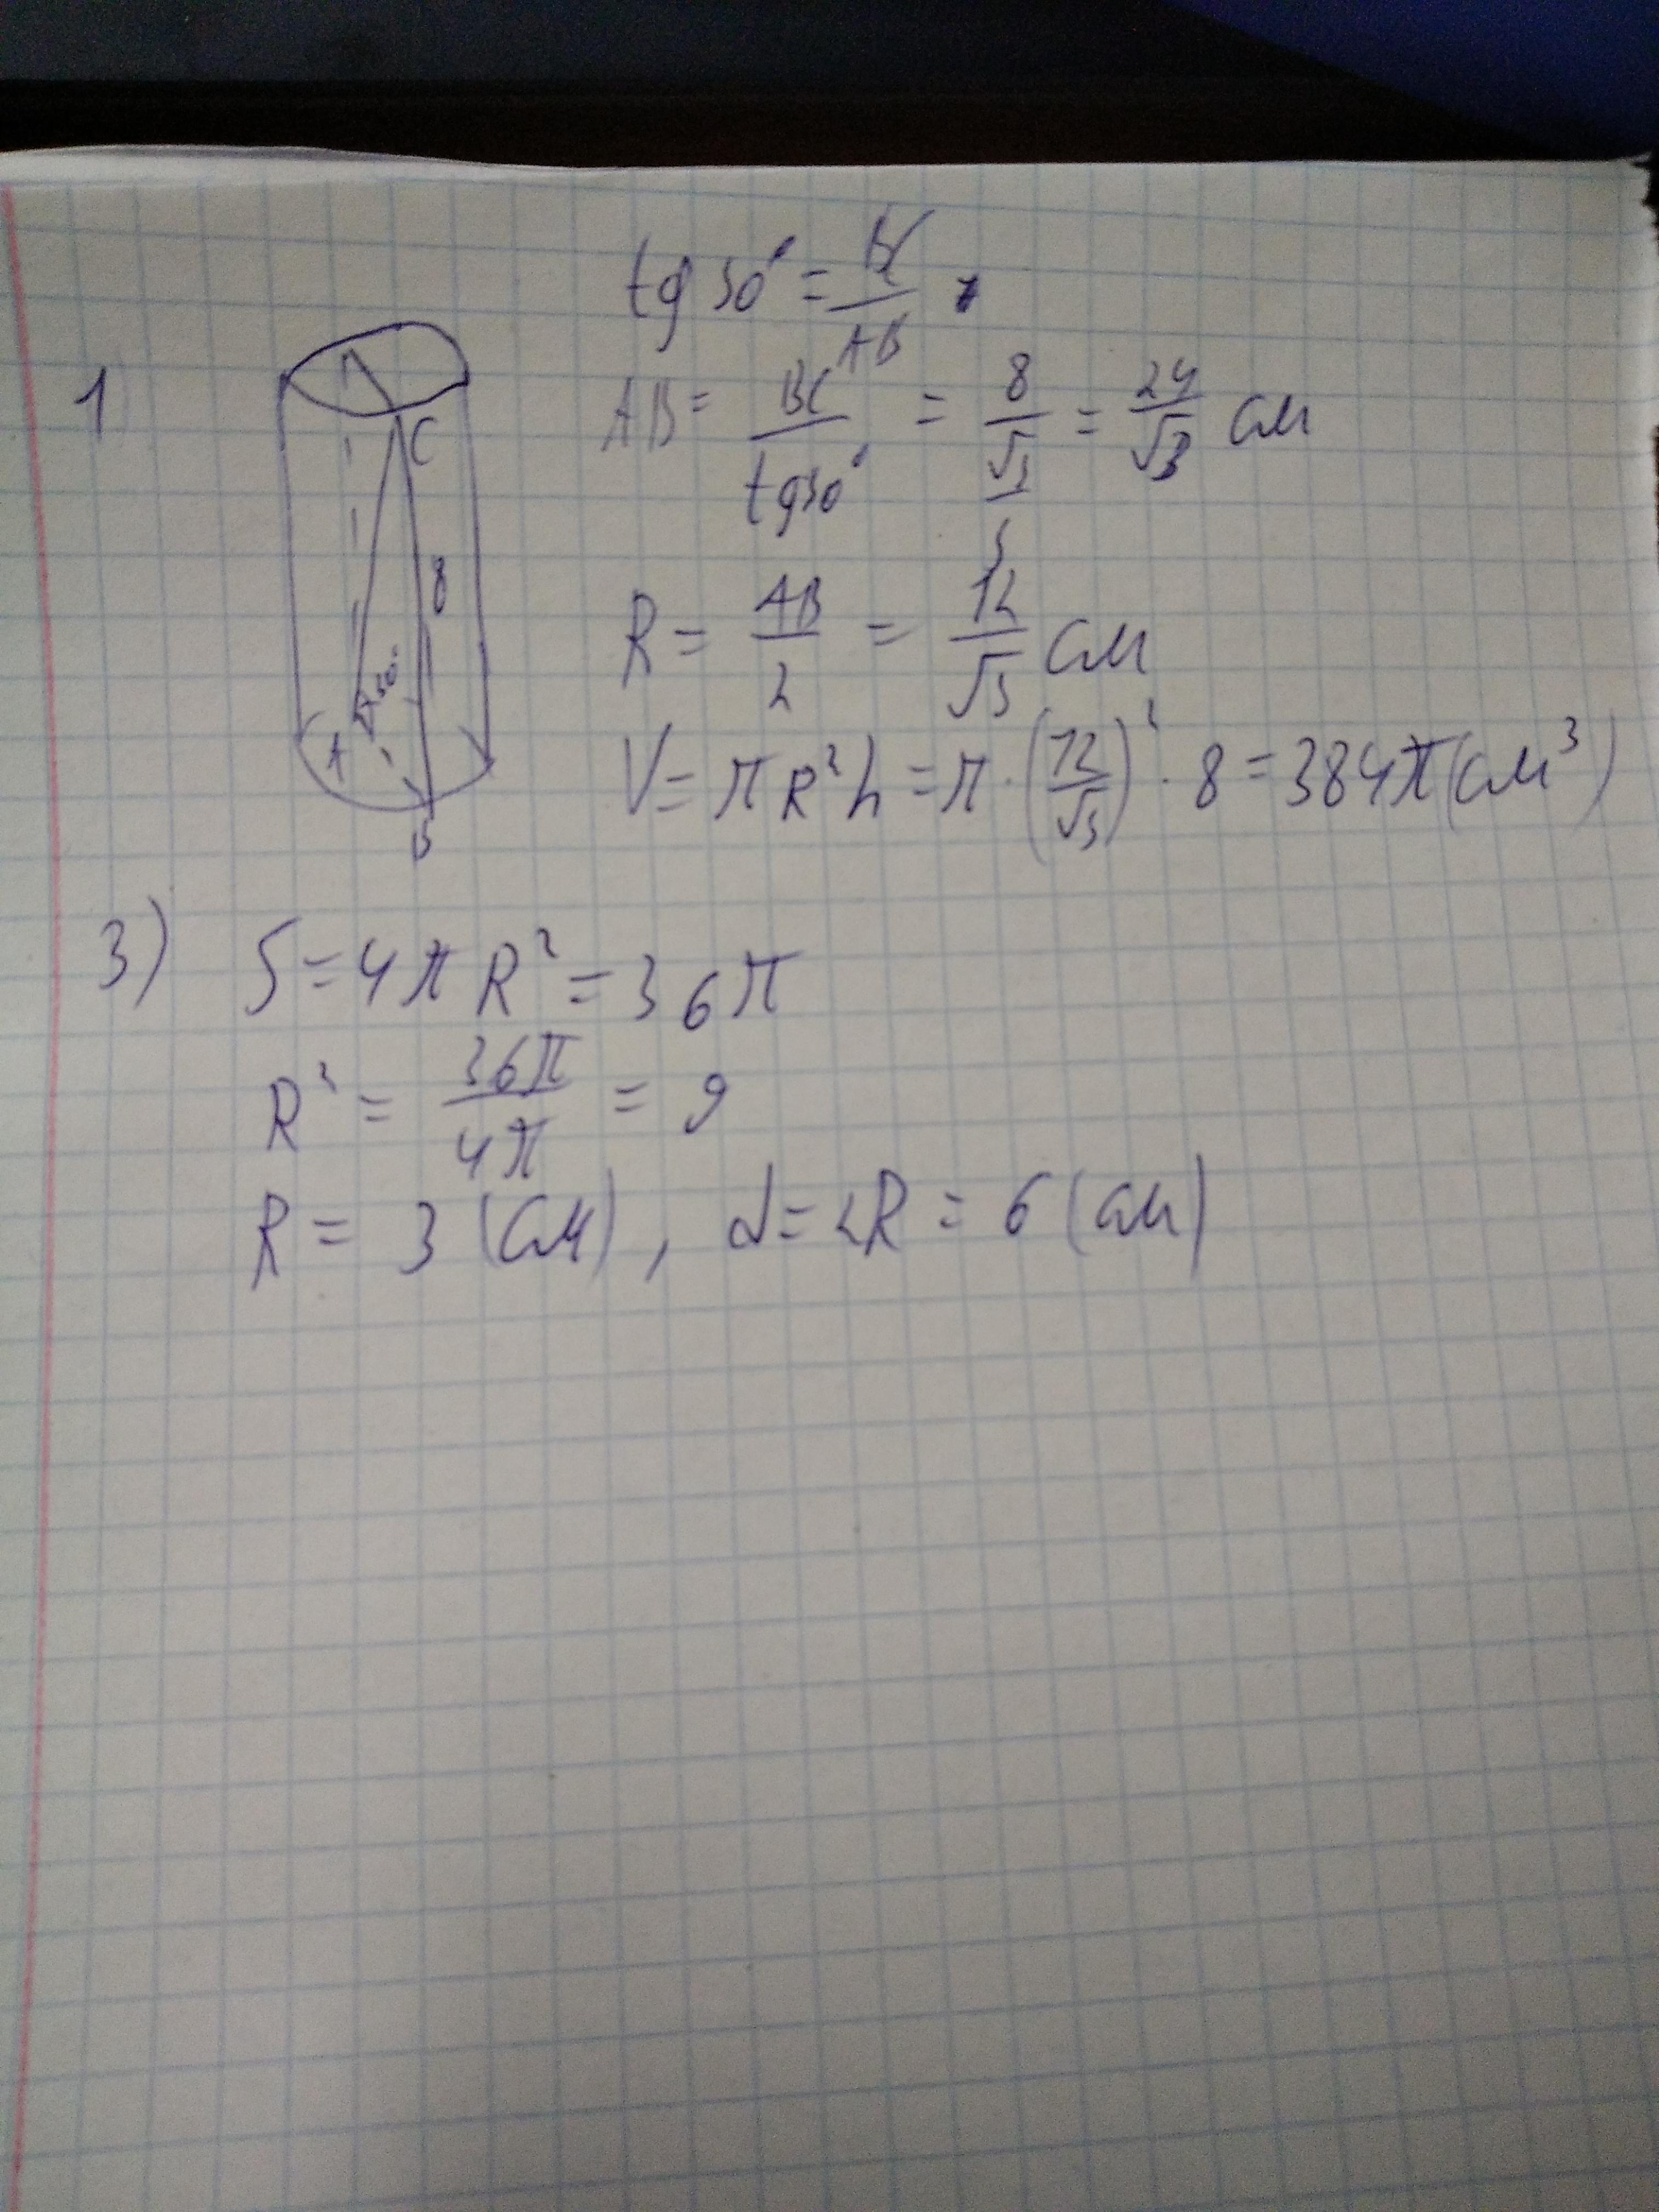 1
tg 30° = BC/AB
AB = BC/tg30° = 8/(√3/3) = 24/√3 см
C
8
30°
A
B
R = AB/2 = 12/√3 см
V = πR²h = π · (12/√3)² · 8 = 384π (см³)
3) S = 4πR² = 36π
R² = 36π/4π = 9
R = 3 (см), d = 2R = 6 (см)